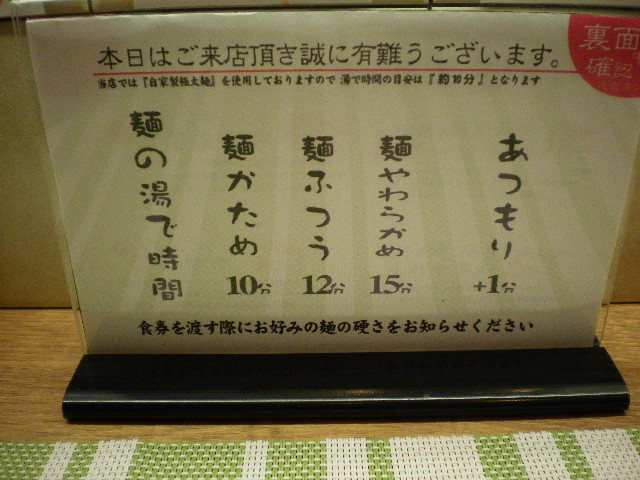 本日はご来店頂き誠に有難うございます。
当店では『自家製極太麺』を使用しておりますので 湯で時間の目安は『約10分』となります
裏面
確認
麺の湯で時間
麺かため 10分
麺ふつう 12分
麺やわらかめ 15分
あつもり +1分
食券を渡す際にお好みの麺の硬さをお知らせください